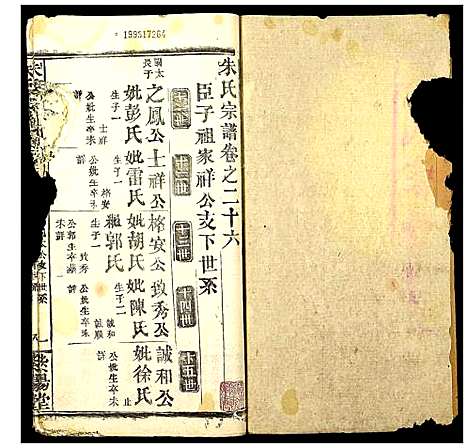 199517264
朱氏宗譜卷之二十六
臣子祖家祥公支下世系
十一世
十二世
十三世
十四世
十五世
之鳳公
士祥公
格安公
致秀公
誠和公
妣彭氏
妣雷氏
妣胡氏
妣陳氏
妣徐氏
繼郭氏
生子一
士祥
公妣生卒未
生子一
格安
公妣生卒未詳
生子一
致秀
公郭生卒未詳
生子二
誠和
誠順
公妣生卒未
止
公妣生卒未
公支下世系
紫陽堂